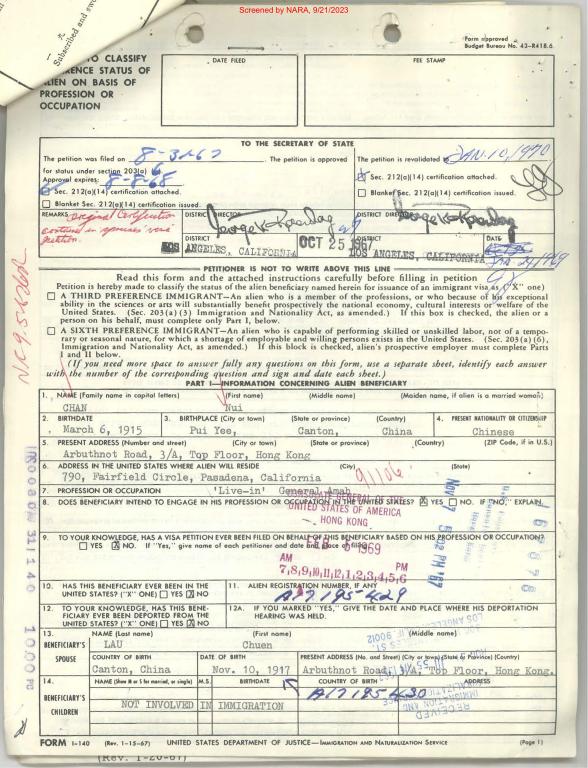 Screened by NARA, 9/21/2023
Subscribed and sw
Form approved
Budget Bureau No. 43-R418.6
TO CLASSIFY
ERENCE STATUS OF
ALIEN ON BASIS OF
PROFESSION OR
OCCUPATION
DATE FILED
FEE STAMP
TO THE SECRETARY OF STATE
The petition was filed on 8-3-67
The petition is approved
for status under section 203(a) 6
Approval expires: 8-8-68
Sec. 212(a)(14) certification attached.
Blanket Sec. 212(a)(14) certification issued.
The petition is revalidated to JAN. 10, 1970
Sec. 212(a)(14) certification attached.
Blanket Sec. 212(a)(14) certification issued.
REMARKS
original Certification
contained in spouses visa
petition.
DISTRICT DIRECTOR
DISTRICT
LOS ANGELES, CALIFORNIA
OCT 25 1967
DISTRICT DIRECTOR
DISTRICT
LOS ANGELES, CALIFORNIA
DATE
PETITIONER IS NOT TO WRITE ABOVE THIS LINE
Read this form and the attached instructions carefully before filling in petition
Petition is hereby made to classify the status of the alien beneficiary named herein for issuance of an immigrant visa as ("X" one)
A THIRD PREFERENCE IMMIGRANT—An alien who is a member of the professions, or who because of his exceptional
ability in the sciences or arts will substantially benefit prospectively the national economy, cultural interests or welfare of the
United States. (Sec. 203(a)(3) Immigration and Nationality Act, as amended.) If this box is checked, the alien or a
person on his behalf, must complete only Part I, below.
A SIXTH PREFERENCE IMMIGRANT—An alien who is capable of performing skilled or unskilled labor, not of a tempo-
rary or seasonal nature, for which a shortage of employable and willing persons exists in the United States. (Sec. 203(a)(6),
Immigration and Nationality Act, as amended.) If this block is checked, alien's prospective employer must complete Parts
I and II below.
(If you need more space to answer fully any questions on this form, use a separate sheet, identify each answer
with the number of the corresponding question and sign and date each sheet.)
PART I—INFORMATION CONCERNING ALIEN BENEFICIARY
1. NAME (Family name in capital letters) (First name) (Middle name) (Maiden name, if alien is a married woman)
CHAN Nui
2. BIRTHDATE 3. BIRTHPLACE (City or town) (State or province) (Country) 4. PRESENT NATIONALITY OR CITIZENSHIP
March 6, 1915 Pui Yee, Canton, China Chinese
5. PRESENT ADDRESS (Number and street) (City or town) (State or province) (Country) (ZIP Code, if in U.S.)
Arbuthnot Road, 3/A, Top Floor, Hong Kong
6. ADDRESS IN THE UNITED STATES WHERE ALIEN WILL RESIDE (City) (State)
790, Fairfield Circle, Pasadena, California
7. PROFESSION OR OCCUPATION
'Live-in' General Amah
8. DOES BENEFICIARY INTEND TO ENGAGE IN HIS PROFESSION OR OCCUPATION IN THE UNITED STATES? X YES NO. IF "NO," EXPLAIN.
UNITED STATES OF AMERICA
HONG KONG
9. TO YOUR KNOWLEDGE, HAS A VISA PETITION EVER BEEN FILED ON BEHALF OF THIS BENEFICIARY BASED ON HIS PROFESSION OR OCCUPATION?
YES X NO. If "Yes," give name of each petitioner and date and place of filing.
1969
AM PM
7,8,9,10,11,12,1,2,3,4,5,6
10. HAS THIS BENEFICIARY EVER BEEN IN THE
UNITED STATES? ("X" ONE) YES X NO
11. ALIEN REGISTRATION NUMBER, IF ANY
A17 195 429
12. TO YOUR KNOWLEDGE, HAS THIS BENE-
FICIARY EVER BEEN DEPORTED FROM THE
UNITED STATES? ("X" ONE) YES X NO
12A. IF YOU MARKED "YES," GIVE THE DATE AND PLACE WHERE HIS DEPORTATION
HEARING WAS HELD.
13. BENEFICIARY'S SPOUSE
NAME (Last name) (First name) (Middle name)
LAU Chuen
COUNTRY OF BIRTH DATE OF BIRTH PRESENT ADDRESS (No. and Street) (City or town) (State or Province) (Country)
Canton, China Nov. 10, 1917 Arbuthnot Road, 3/A, Top Floor, Hong Kong.
14. BENEFICIARY'S CHILDREN
NAME (Show M or S for married, or single) M.S. BIRTHDATE COUNTRY OF BIRTH ADDRESS
A17 195 430
NOT INVOLVED IN IMMIGRATION
FORM I-140 (Rev. 1-15-67) UNITED STATES DEPARTMENT OF JUSTICE—IMMIGRATION AND NATURALIZATION SERVICE (Page 1)
(Rev. 1-20-67)